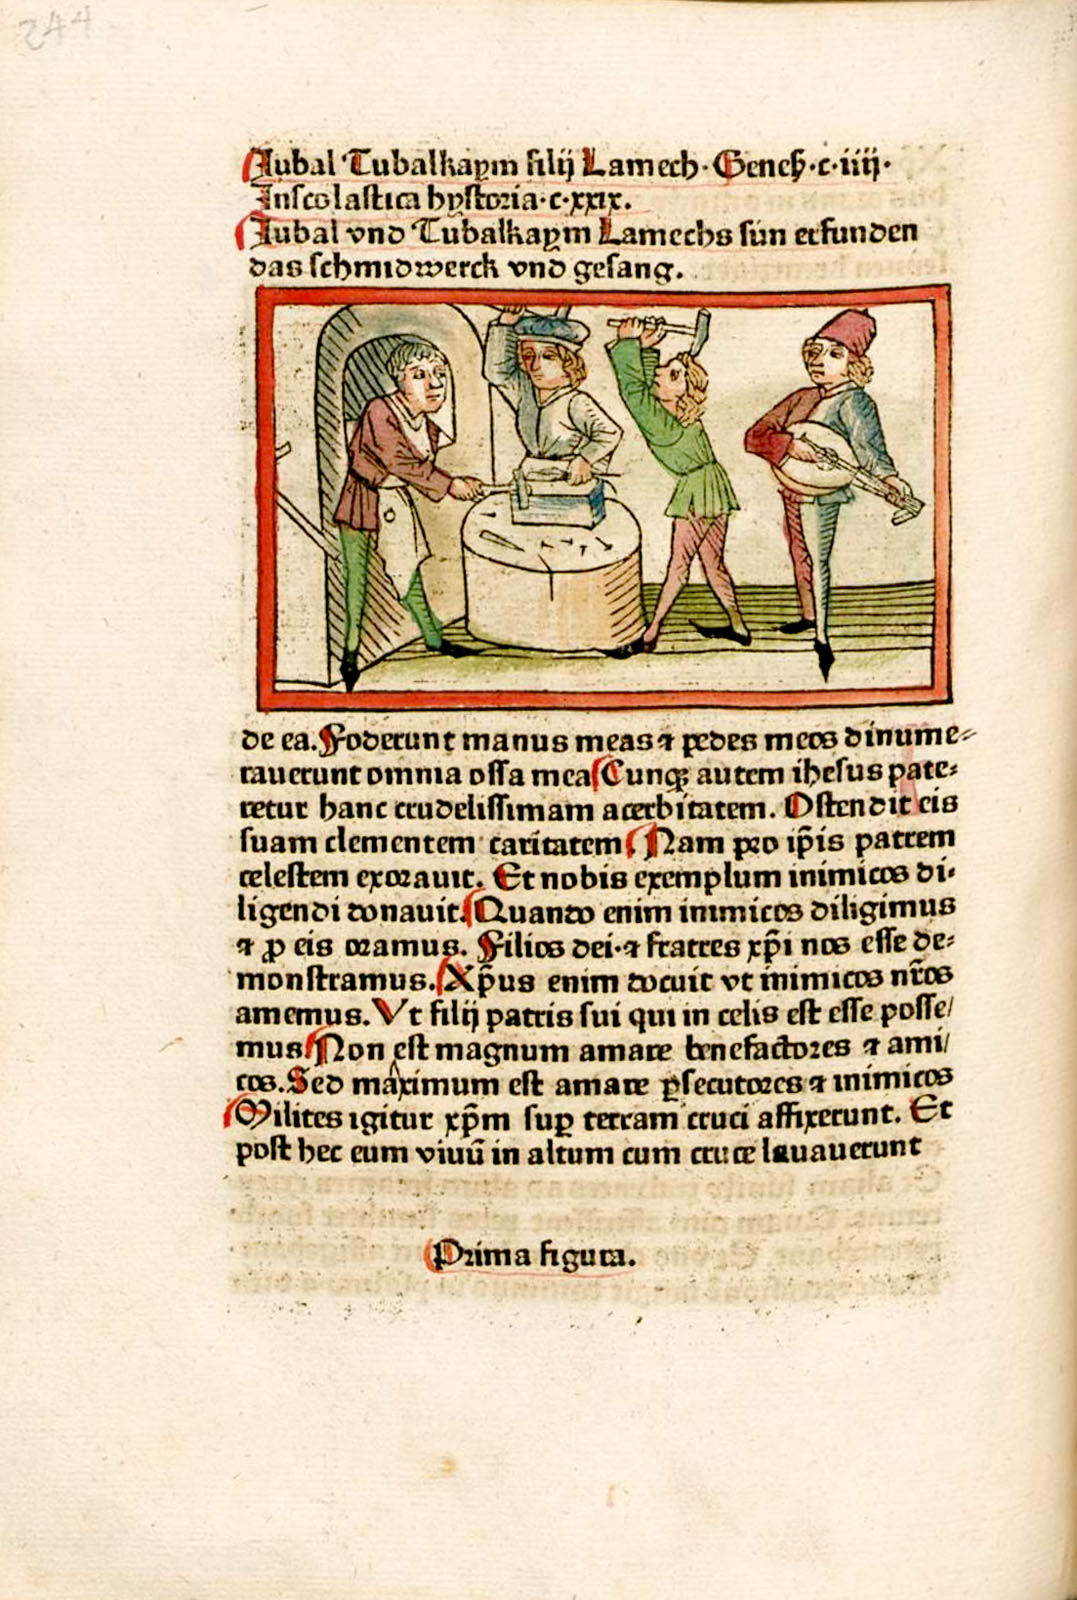 244
Jubal Tubalkaym filij Lamech· Geneẜ·c·iiij·
Inscolastica hystoria·c·xxix.
Jubal vnd Tubalkaym Lamechs sün erfunden
das schmidwerck vnd gesang.
de ea. Foderunt manus meas ⁊ pedes meos dinume⸗
rauerunt omnia ossa mea Cunqꝫ autem ihesus pate⸗
retur hanc crudelissimam acerbitatem. Ostendit eis
suam clementem caritatem. Nam pro ip̄is patrem
celestem exorauit. Et nobis exemplum inimicos di⸗
ligendi donauit. Quando enim inimicos diligimus
⁊ ꝓ eis oramus. Filios dei·⁊ fratres xp̄i nos esse de⸗
monstramus. Xp̄us enim docuit vt inimicos nr̄os
amemus. Vt filij patris sui qui in celis est esse posse/
mus Non est magnum amare benefactores ⁊ ami/
cos. Sed maximum est amare ꝑsecutores ⁊ inimicos
Milites igitur xp̄m suꝑ terram cruci affixerunt. Et
post hec eum viuū in altum cum cruce leuauerunt
Prima figura.